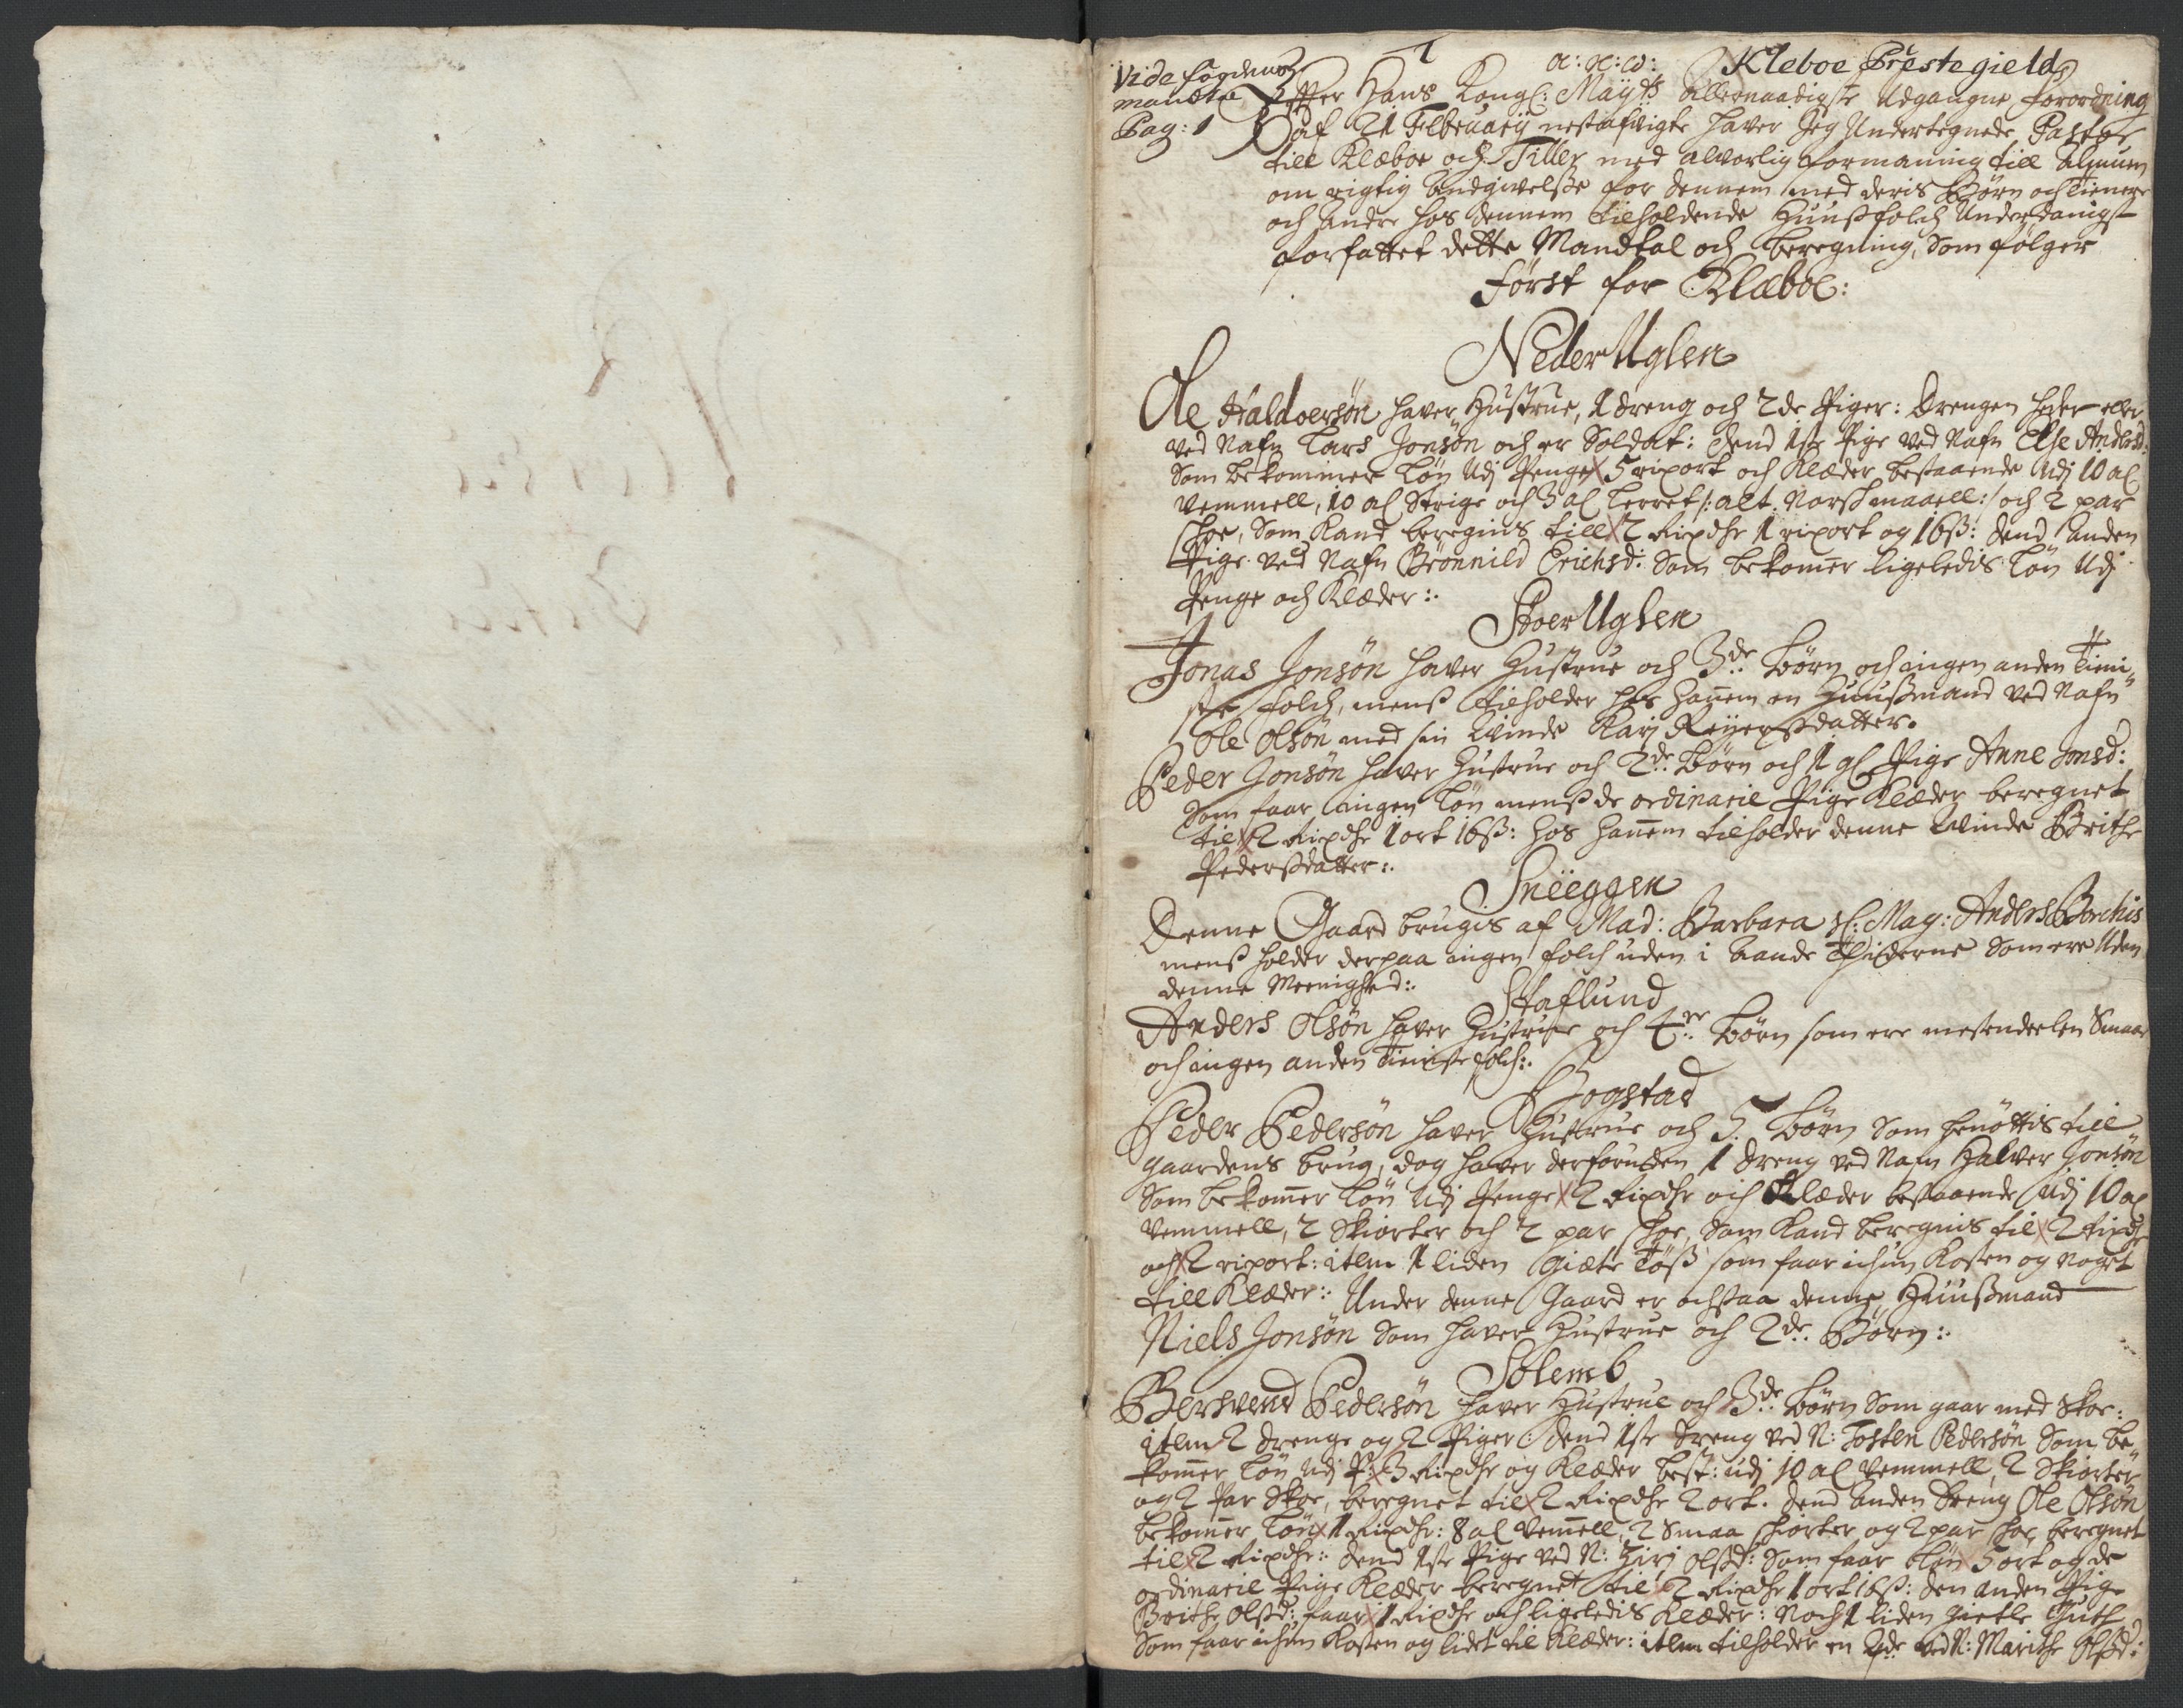 Vide fogdens
mandtal
Pag: 1
1
α: et: ω: Kleboe Prestegield
Effter Hans Kongl: Mayts allernaadigste Udgangne forordning
af 21 Februarij nestafvigte haver Jeg Undertegnede Pastor
till Klæboe och Tiller med alvorlig formaning till Almuen
om rigtig Andgivelsse for dennem med deris Børn och Tienere
och andre hos dennem tilholdende Huussfolch Underdanigst
forfattet dette Mandtal och beregning, som følger
Først for Klæboe:
Neder Uglen
Ole Haldoersøn haver Hustrue, 1 dreng och 2de Piger: Drengen heder eller
ved Nafn Lars Jonsøn och er Soldat: dend 1ste Pige ved Nafn Else Andersd:
Som bekommer Løn Udj Penge 5 rixort och Klæder bestaaende Udj 10 al
Vemmell, 10 al Strige och 3 al Lerret /: alt Norsk maaell :/ och 2 par
skoe, Som Kand beregnis till 2 Rixdlr 1 rixort og 16ß: dend Anden
Pige ved Nafn Brønnild Erichsd: Som bekomer ligeledis Løn Udj
Penge och Klæder:.
Stoer Uglen
Jonas Jonsøn haver Hustrue och 3de Børn och ingen anden Tieni-
ste folch, menss tilholder hos hanem en Huussmand ved Nafn
Ole Olsøn med sin Qvinde Karj Reyerssdatter.
Peder Jonsøn haver Hustrue och 2de Børn och 1 gl Pige Anne Jonsd:
Som faar ingen Løn menss de ordinarie Pige Klæder beregnet
til 2 Rixdlr 1 ort 16ß: hos hanem tilholder denne Qvinde Brithe
Pederssdatter:.
Sneeggen
Denne Gaard brugis af Mad: Barbara Sl: Mag: Anders Borchis
menss holder derpaa ingen folch uden i Aande Thiderne Som ere Uden
denne Meenighed:.
Staflund
Anders Olsøn haver Hustrue och 4re Børn som ere mestendeelen Smaae
och ingen anden Tieniste folch:.
Hogstad
Peder Pedersøn haver Hustrue och 5 Børn Som benøttis till
gaardens brug, dog haver derforuden 1 dreng ved Nafn Halver Jonsøn
Som bekomer Løn Udj Penge 2 Rixdlr och Klæder bestaaende Udj 10 al
Vemmell, 2 Skiorter och 2 par skoe, Som Kand beregnis til 2 Rixdlr
och 2 rixort: item 1 liden giæte Tøss som faar ichun Kosten og noget
till Klæder:. Under denne Gaard er ochsaa denne Huussmand
Niels Jonsøn Som haver Hustrue och 2de Børn:.
Solemb
Bersvend Pedersøn haver Hustrue och 3de Børn Som gaar med Skoe:
item 2 drenge og 2 Piger: dend 1ste dreng ved N: Tosten Pedersøn Som be-
komer Løn Udj P: 3 Rixdlr og Klæder best: udj 10 al Vemmell, 2 Skiorter
og 2 Par Skoe, beregnet til 2 Rixdlr 2 ort. dend Anden Dreng Ole Olsøn
bekomer Løn 1 Rixdlr: 8 al Vemell, 2 Smaa skiorter og 2 par skoe beregnet
til 2 Rixdlr:. dend 1ste Pige ved N: Zirj Olssd: Som faar Løn 5 ort og de
ordinarie Pige Klæder beregnet til 2 Rixdlr 1 ort 16ß: den anden Pige
Brithe Olssd: faar 1 Rixdlr och ligeledis Klæder: Noch 1 liden gietle Guth
Som faar ichun Kosten og lidet til Klæder: item tilholder en Qde ved N: Marithe Olssd: